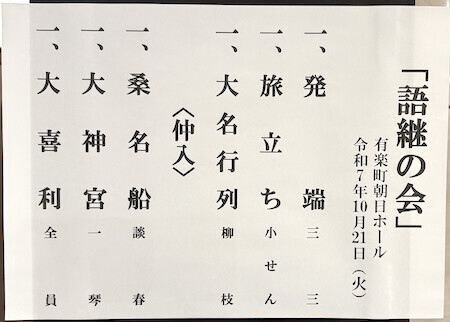 「語継の会」
有楽町朝日ホール
令和7年10月21日（火）
一、発端 三三
一、旅立ち 小せん
一、大名行列 柳枝
〈仲入〉
一、桑名船 談春
一、大神宮 一琴
一、大喜利 全員